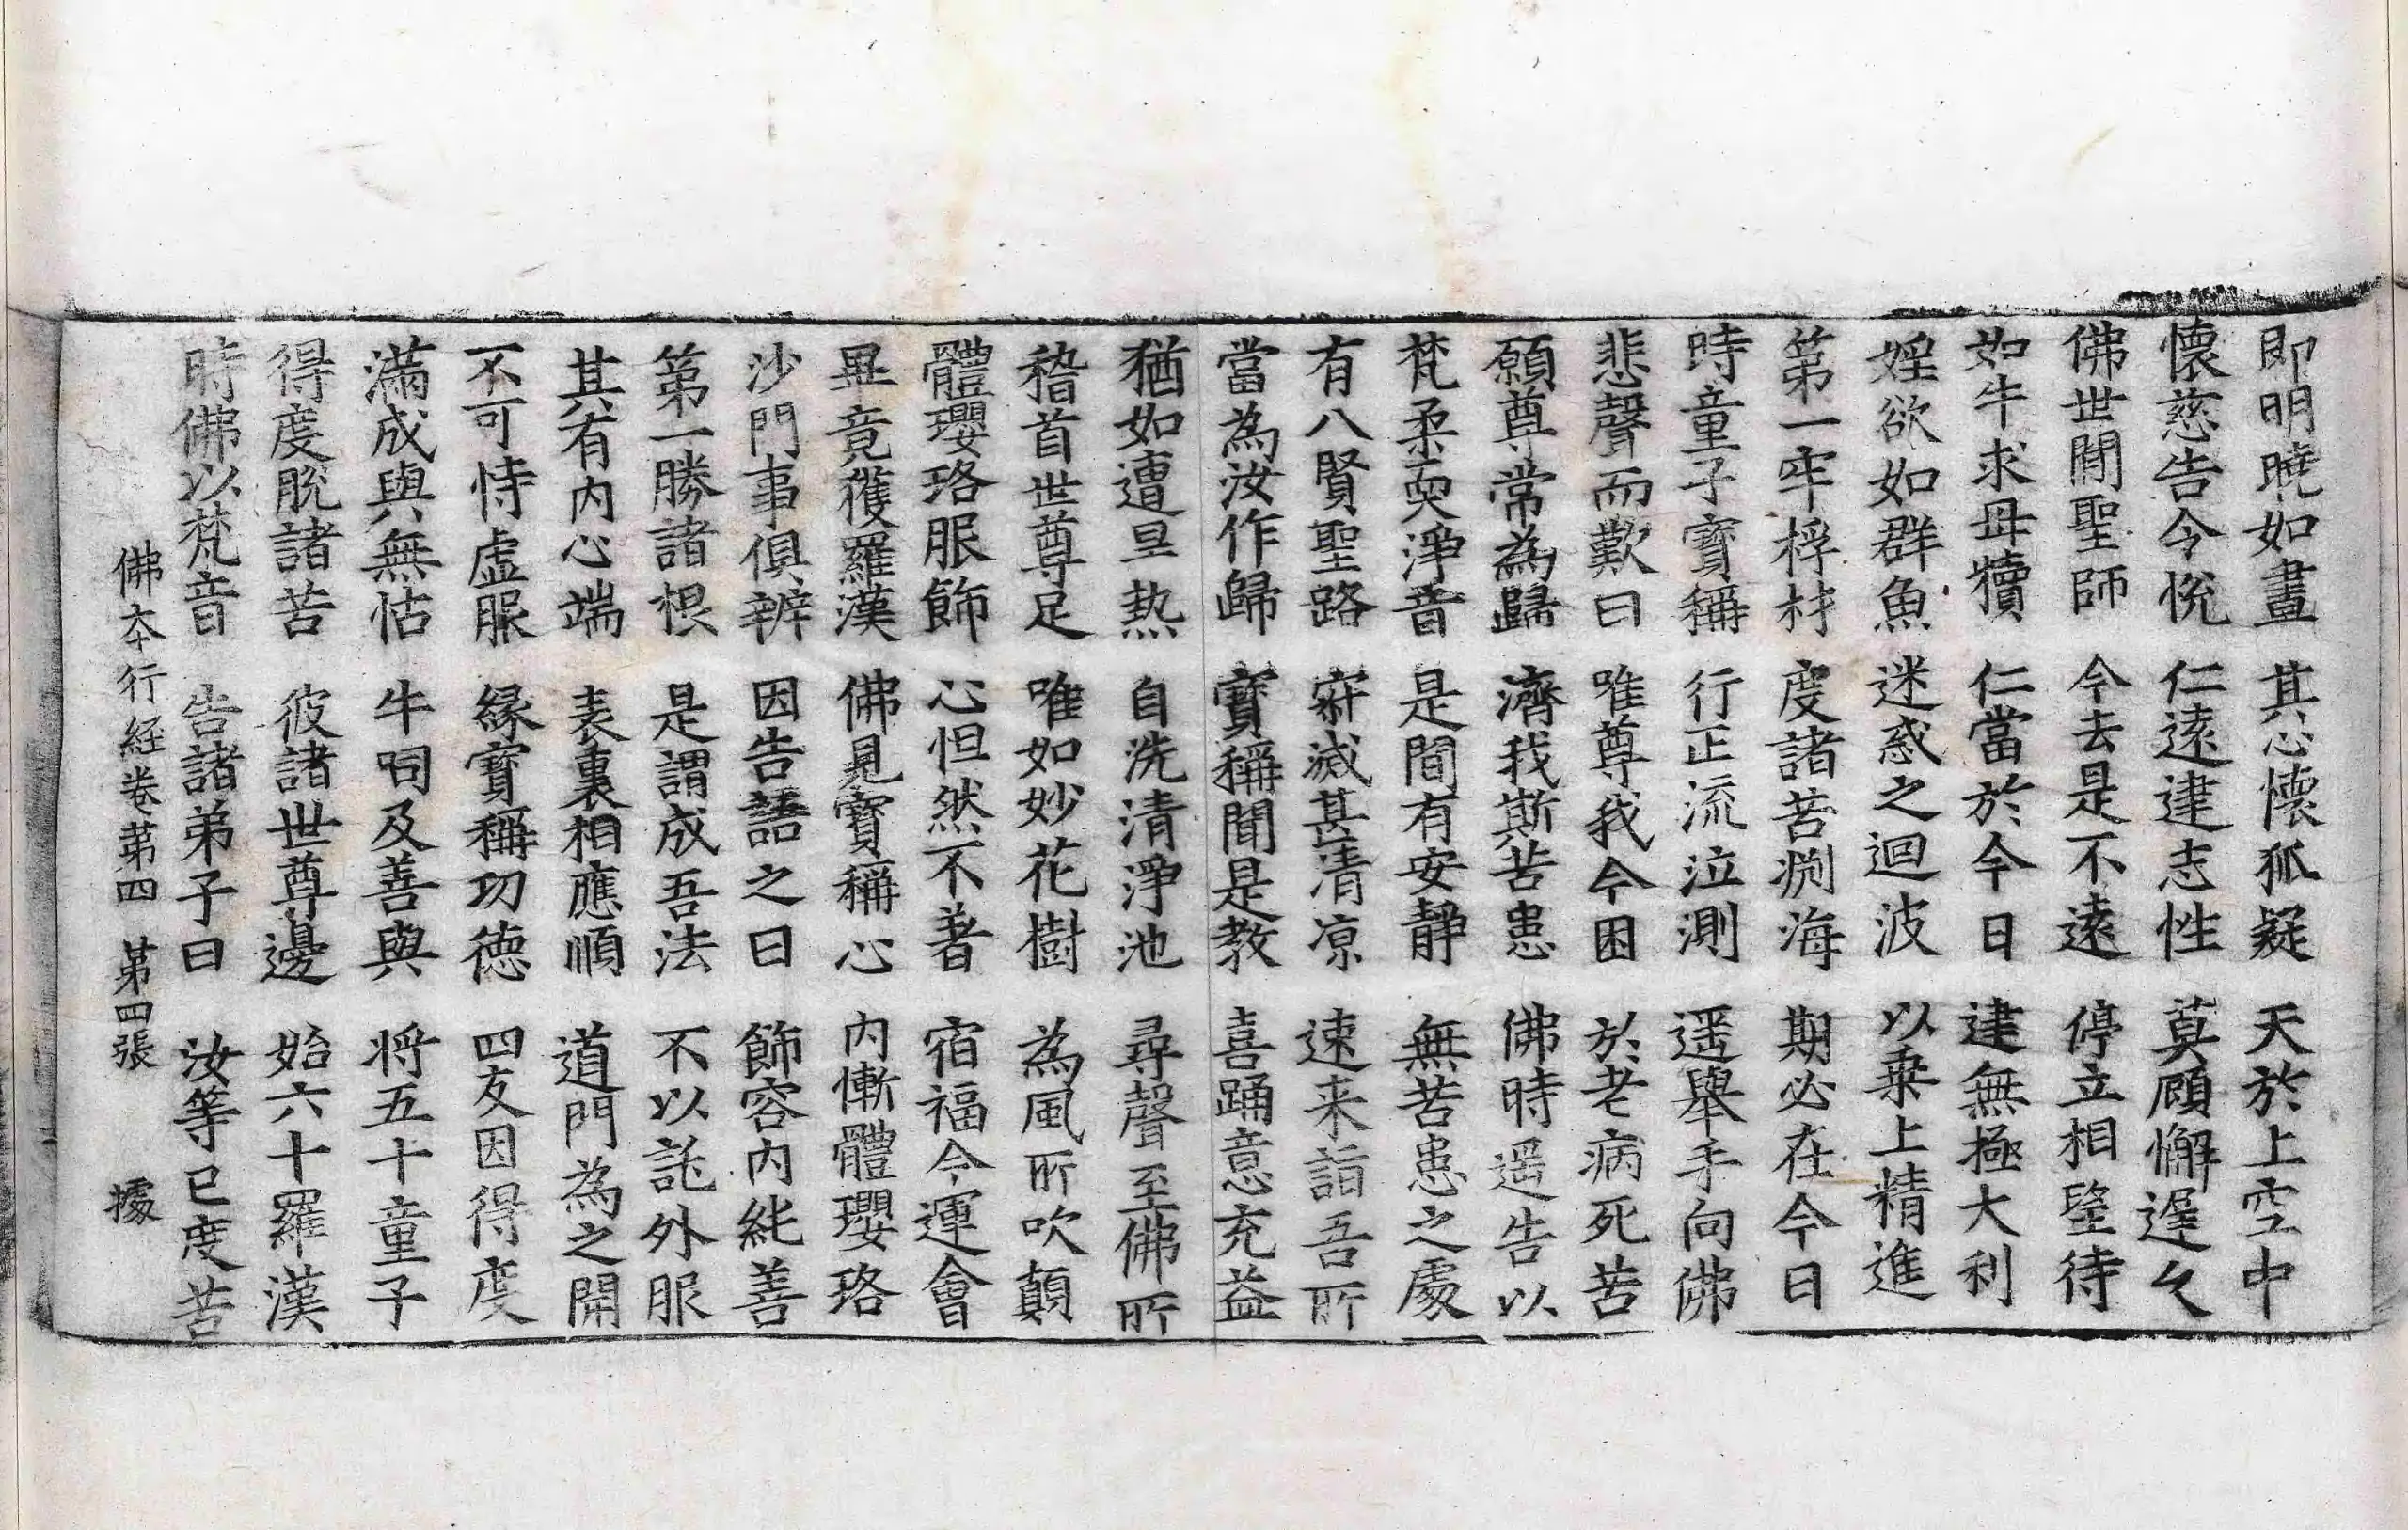 即明曉如晝 其心懷狐疑 天於上空中
懷慈告令悅 仁遠建志性 莫顧懈遲久
佛世間聖師 今去是不遠 停立相望待
如牛求母犢 仁當於今日 建無極大利
婬欲如群魚 迷惑之迴波 以乘上精進
第一牢桴材 度諸苦淵海 期必在今日
時童子寶稱 行正流泣測 遥舉手向佛
悲聲而歎曰 唯尊我今困 於老病死苦
願尊常為歸 濟我斯苦患 佛時遥告以
梵柔耎淨音 是間有安靜 無苦患之處
有八賢聖路 寂滅甚清凉 速来詣吾所
當為汝作歸 寶稱聞是教 喜踊意充益
猶如遭旱热 自洗清淨池 尋聲至佛所
稽首世尊足 唯如妙花樹 為風所吹顛
體瓔珞服飾 心怛然不著 宿福今運會
畢竟獲羅漢 佛見寶稱心 内慚體瓔珞
沙門事俱辨 因告語之曰 飾容内能善
第一勝諸根 是謂成吾法 不以託外服
其有内心端 表裏相應順 道門為之開
不可恃虛服 緣寶稱功德 四友因得度
滿成與無怙 牛呞及善與 将五十童子
得度脫諸苦 彼諸世尊邊 始六十羅漢
時佛以梵音 告諸弟子曰 汝等已度苦
佛夲行經卷苐四 苐四張 據